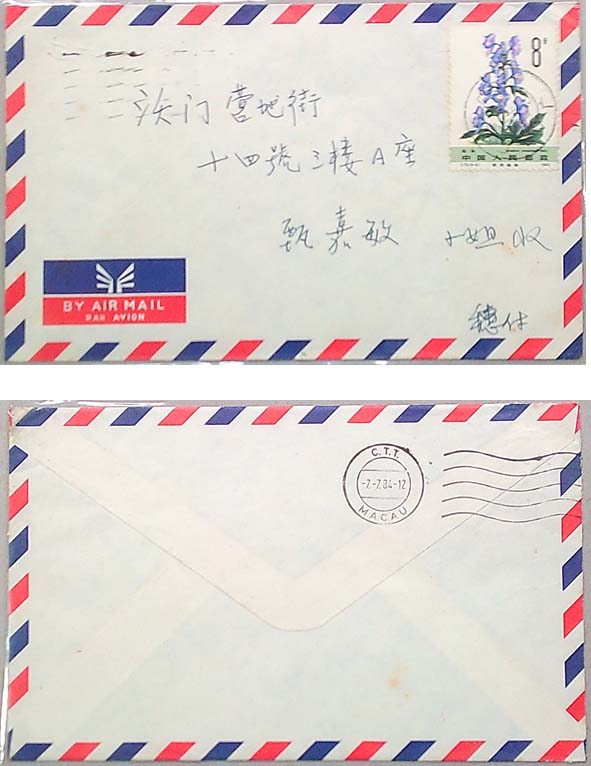 澳门 营地街
十四號三樓A座
甄嘉敏 小姐收
穗付
8分
中国人民邮政
BY AIR MAIL
PAR AVION
C.T.T.
-7.-7.84-12
MACAU